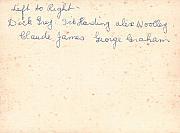 Left to Right -
Dick Grey Tib Harding Alex Woolley
Claude James George Graham